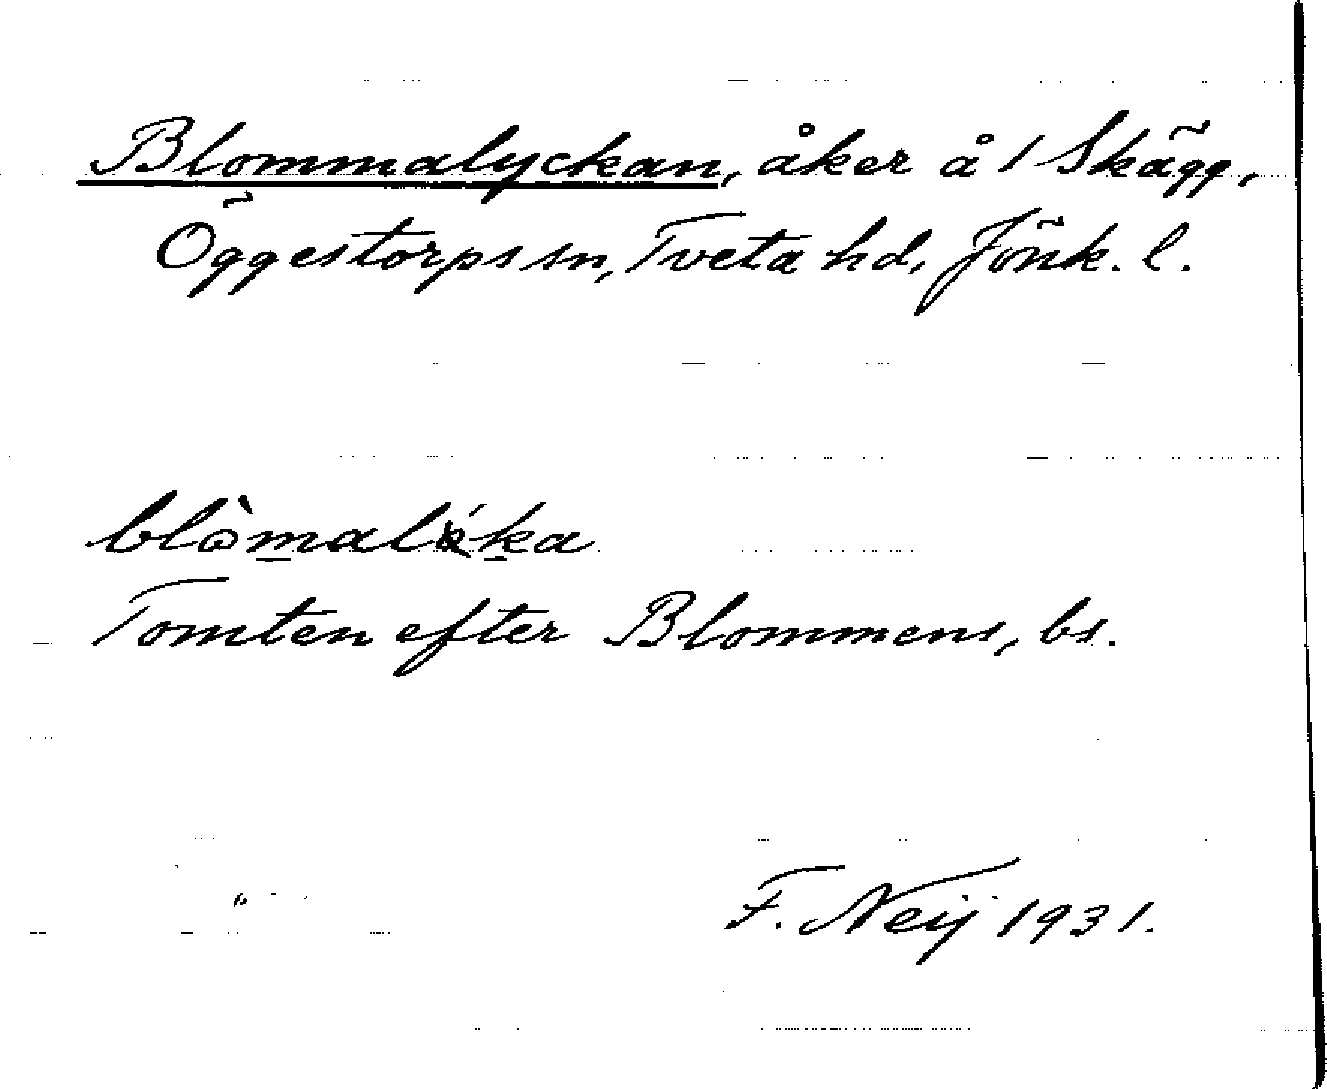 Blommalyckan, åker å 1 Skägg,
Öggestorps sn, Tveta hd, Jönk. l.
Tomten efter Blommens, bs.
F. Neij 1931.